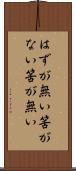 はずが無い筈が
ない筈が無い